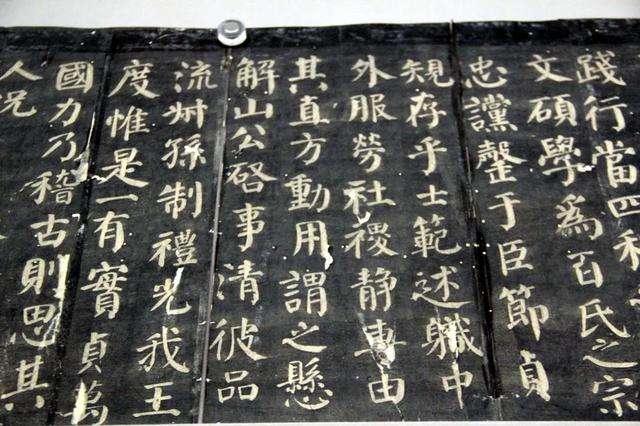 踐行當四科
文碩學為百氏之宗
忠讜罄于臣節貞
規存乎士範述職中
外服勞社稷静專由
其直方動用謂之懸
解山公啓事清彼品
流叔孫制禮光我王
度惟是一有實貞萬
國力乃稽古則思其
人況